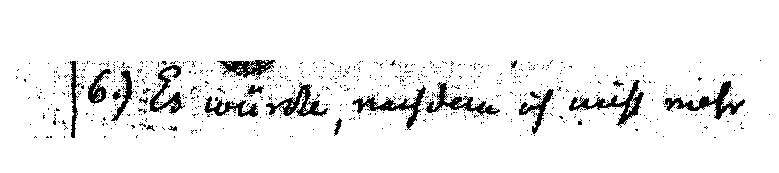 6.) Es würde, nachdem ich nicht mehr